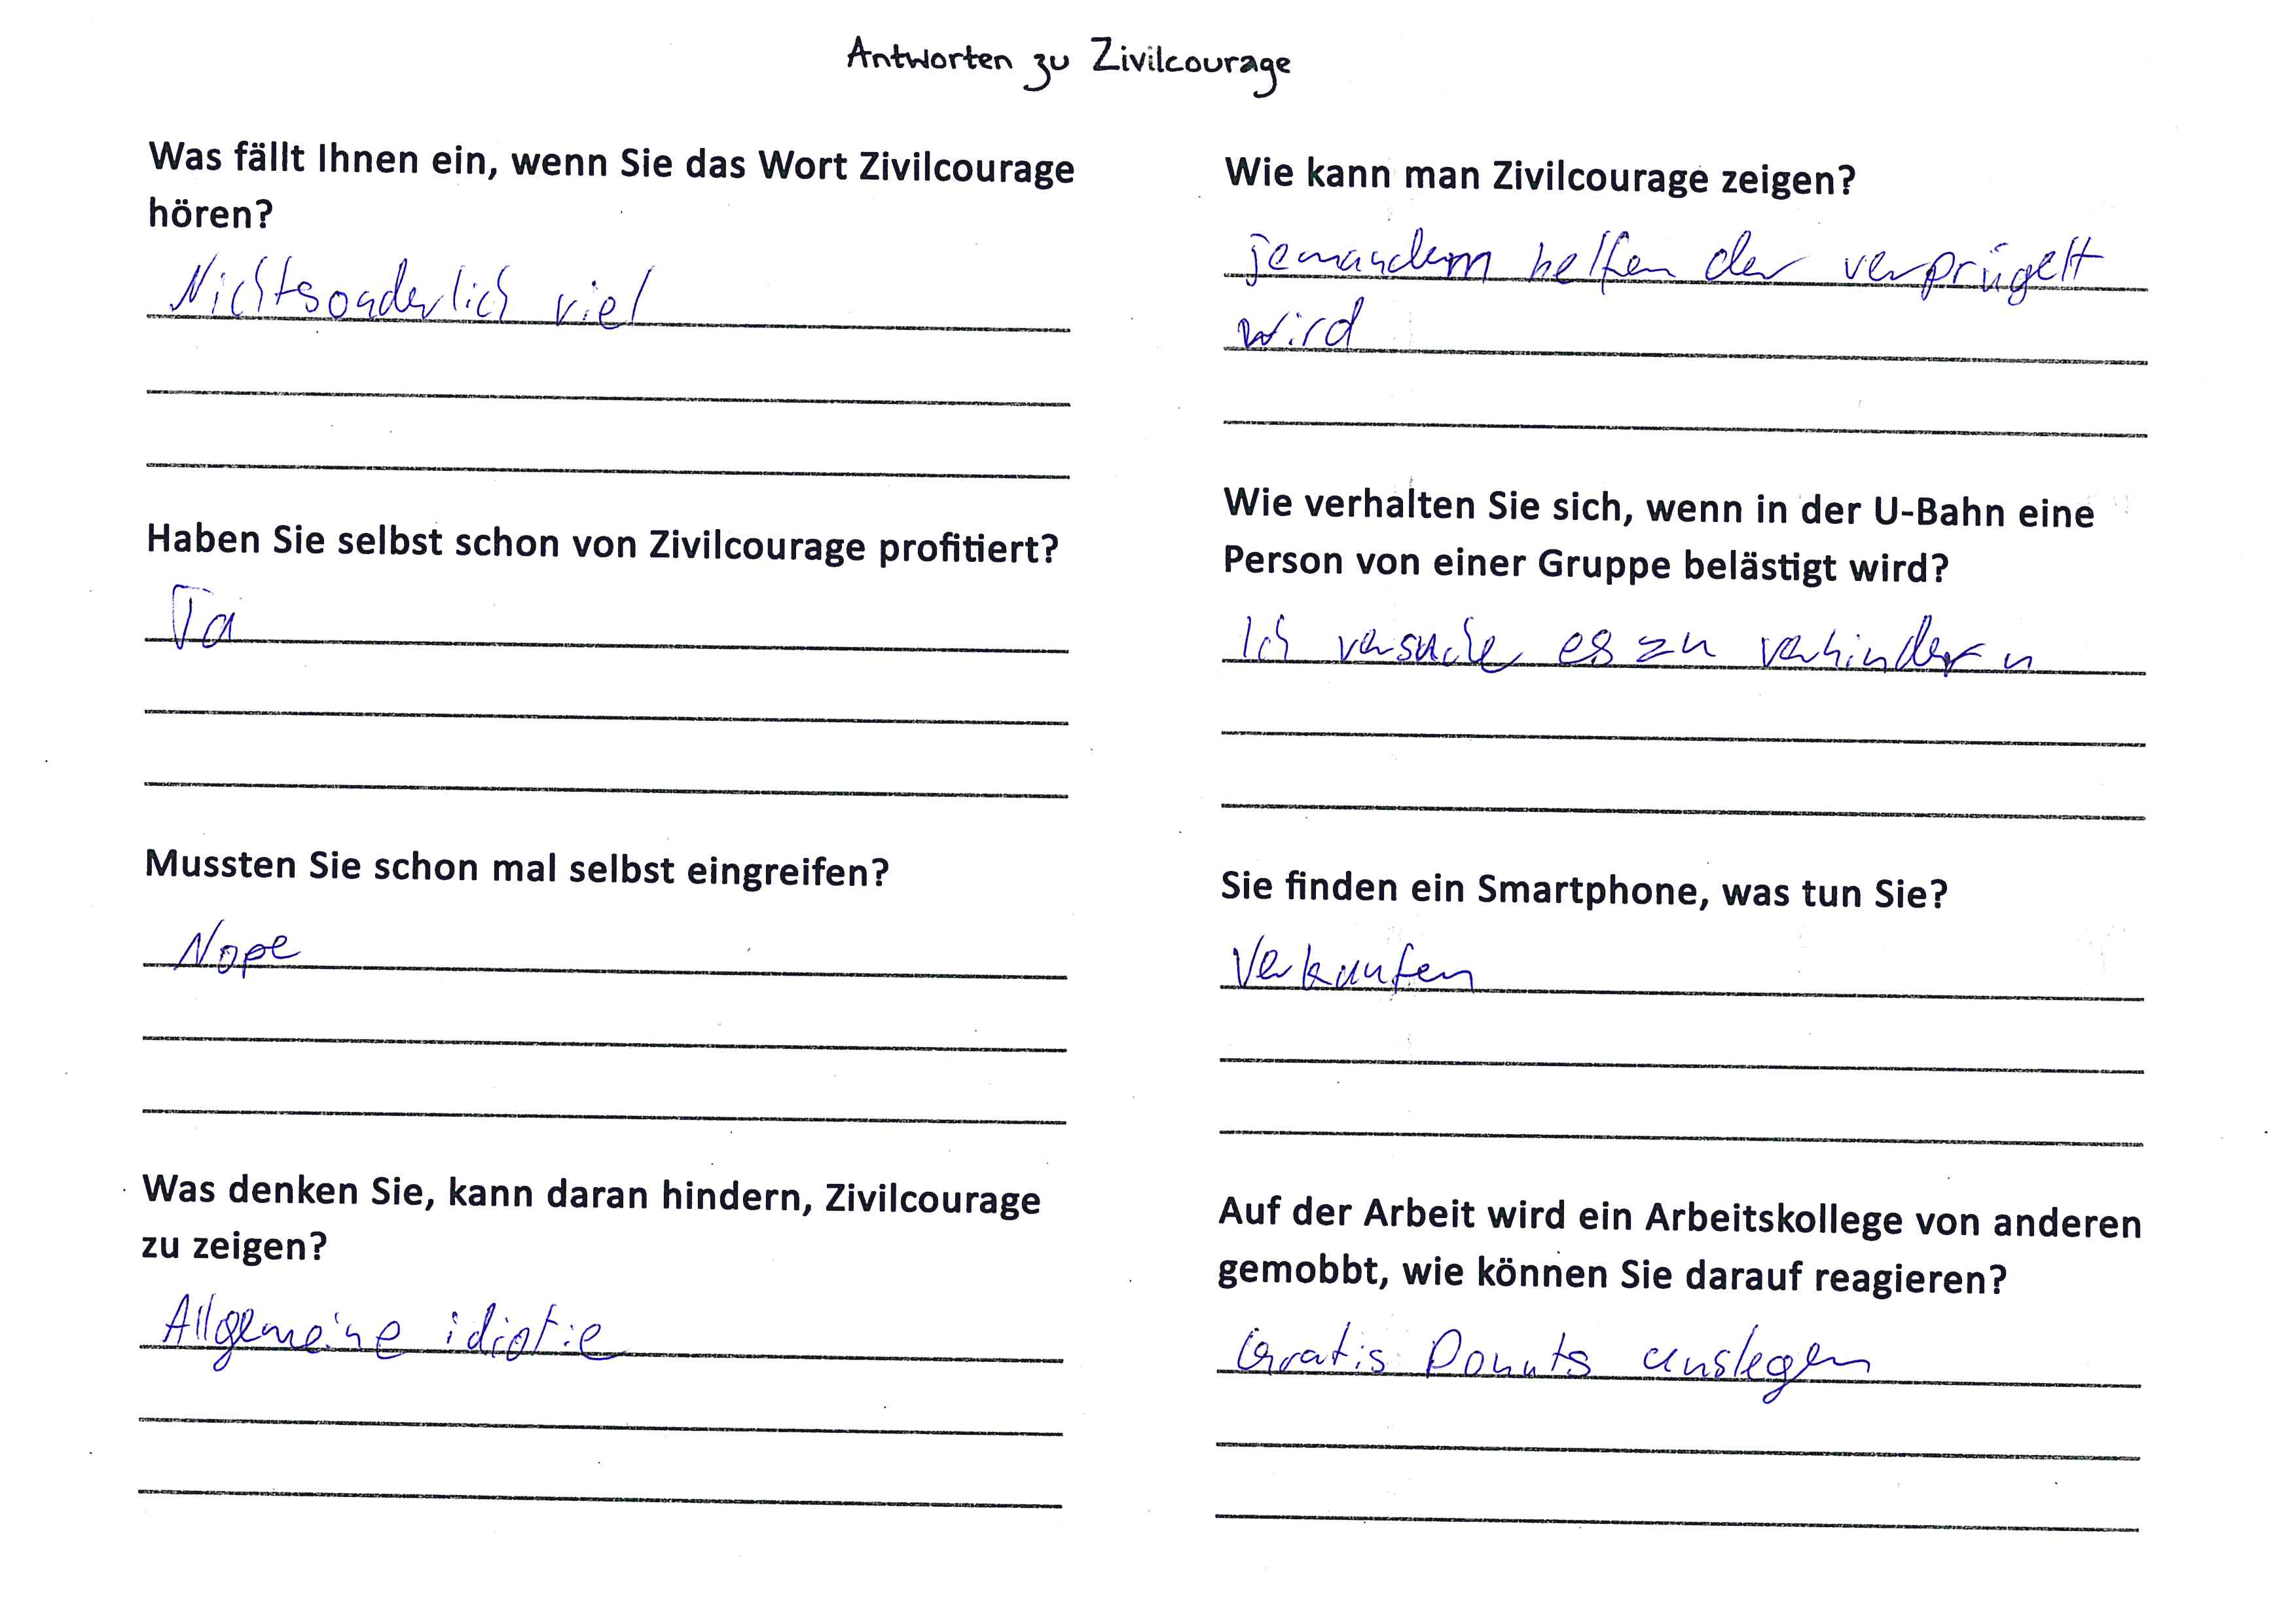 Antworten zu Zivilcourage
Was fällt Ihnen ein, wenn Sie das Wort Zivilcourage
hören?
Nichtsonderlich viel
Haben Sie selbst schon von Zivilcourage profitiert?
Ja
Mussten Sie schon mal selbst eingreifen?
Nope
Was denken Sie, kann daran hindern, Zivilcourage
zu zeigen?
Allgemeine idiotie
Wie kann man Zivilcourage zeigen?
jemandem helfen der verprügelt
wird
Wie verhalten Sie sich, wenn in der U-Bahn eine
Person von einer Gruppe belästigt wird?
Ich versuche es zu verhindern
Sie finden ein Smartphone, was tun Sie?
Verkaufen
Auf der Arbeit wird ein Arbeitskollege von anderen
gemobbt, wie können Sie darauf reagieren?
Gratis Donuts auslegen